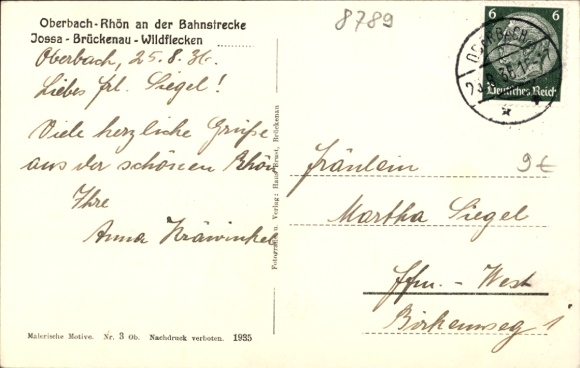 Oberbach-Rhön an der Bahnstrecke
Jossa - Brückenau - Wildflecken
Oberbach, 25.8.36.
Liebes Frl. Siegel!
Viele herzliche Grüße
aus der schönen Rhön
Ihre
Anna Kräwinkel
Malerische Motive. Nr. 3 Ob. Nachdruck verboten. 1935
Fotografien u. Verlag: Hans Ernst, Brückenau
8789
6 6
Deutsches Reich
OBERBACH
9€
Fräulein
Martha Siegel
Ffm. - West
Birkenweg 1